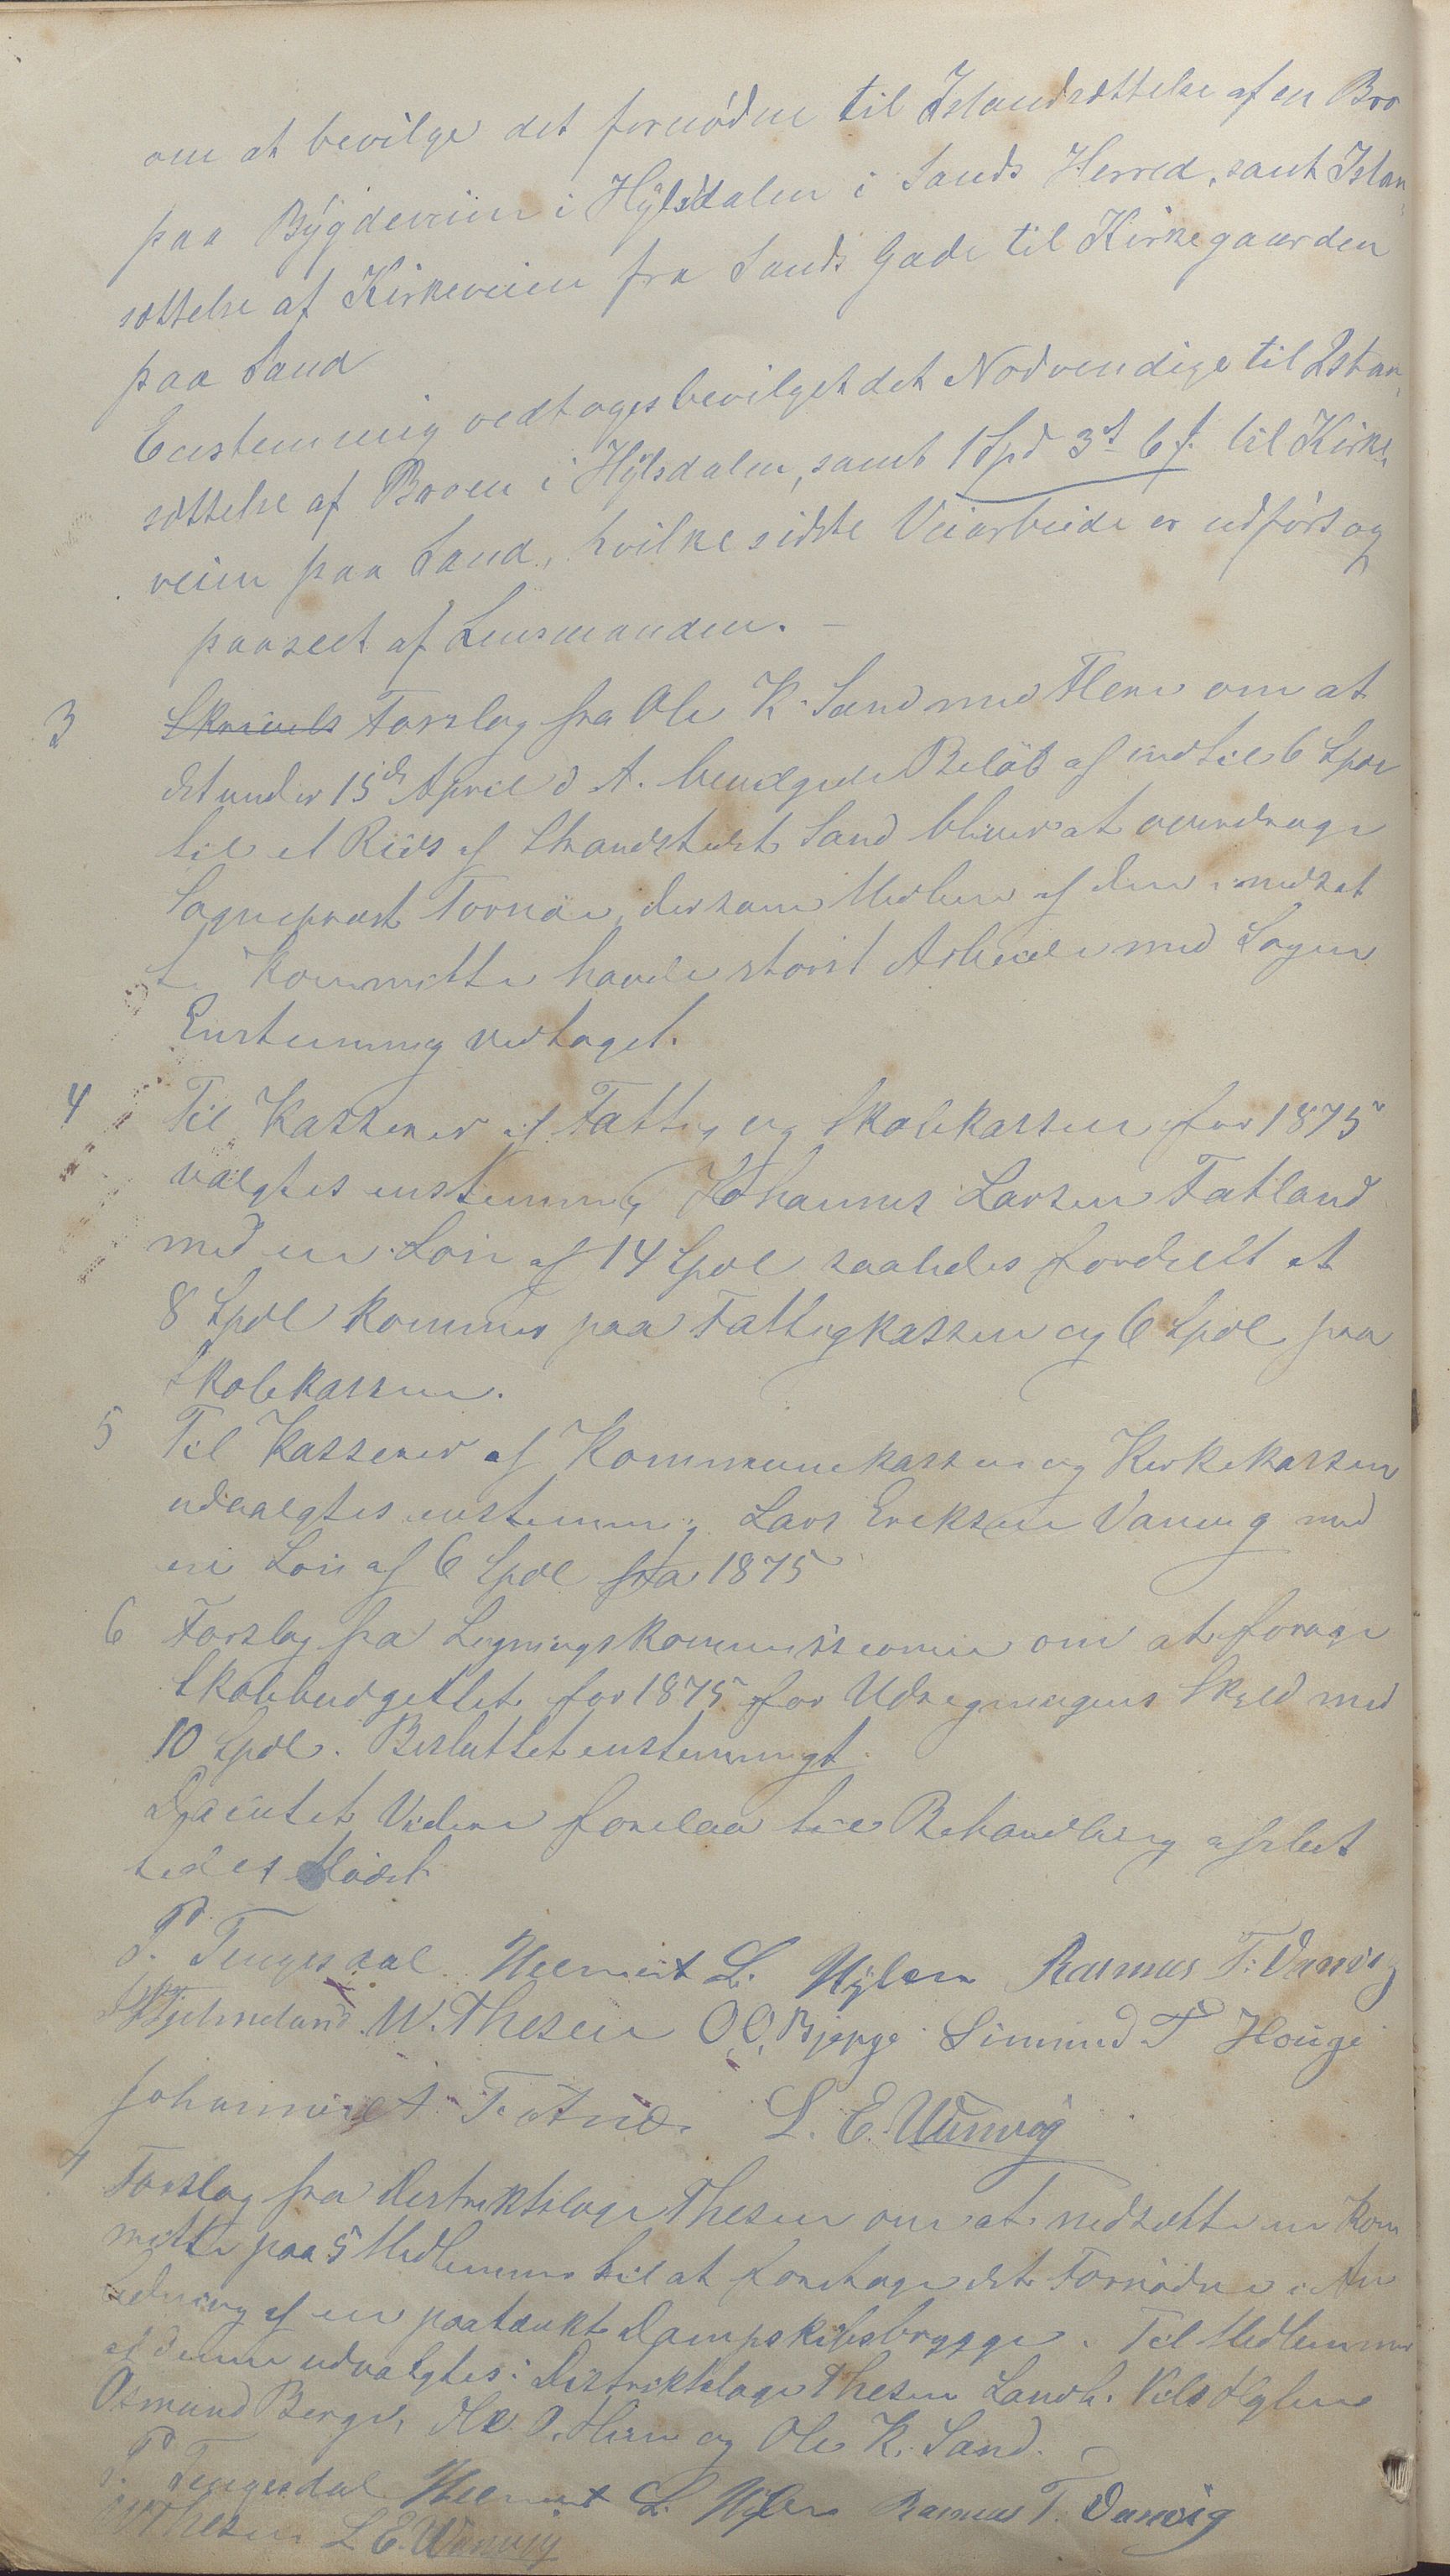 om at bevilge det fornødne til Istandsættelse af en Bro
paa Bygdeveien i Hylsdalen i Sands Herred, samt Istan,
sættelse af Kirkeveien fra Sands Gade til Kirkegaarden
paa Sand
Enstemmig vedtoges bevilget det Nødvendige til Istan,
sættelse af Broen i Hylsdalen, samt 1 Spd 3 6 til Kirke,
veien paa Sand, hvilke sidste Veiarbeide er udført og
paaseet af Lensmanden. –
3 Forslag fra Ole K. Sand med Flere om at
det under 15de April d. A. bevilgede Beløb af indtil 6 Spdl
til et Rids af Strandstedet Sand bliver at overdrage
Sognepræst Tornøe, der som Medlem af den nedsat
te Kommitte havde størst Arbeide med Sagen
Enstemmig vedtaget.
4 Til Kasserer af Fattig og Skolekassen for 1875
valgtes enstemmig Johannes Larsen Fatland
med en Løn af 14 Spdl saaledes fordelt at
8 Spdl kommer paa Fattigkassen og 6 Spdl paa
Skolekassen.
5 Til Kasserer af Kommunekassen og Kirkekassen
udvalgtes enstemmig Lars Eriksen Vanvig med
en Løn af 6 Spdl fra 1875
6 Forslag fra Ligningskommissionen om at forøge
Skolebudgettet for 1875 for Udregningens Skyld med
10 Spdl. Besluttet enstemmigt.
Da intet Videre forelaa til Behandling afslut
tedes Mødet
P. Tengesdal Helmeit L. Hylen Rasmus T. Vanvig
Hjelmeland W. Thesen O. O. Bjerge Simund T Houge
Johannes Fatland. L. E. Wanvig
7 Forslag fra Distriktslæge Thesen om at nedsætte en Kom
mitte paa 5 Medlemmer til at foretage det Fornødne i An
ledning af en paatænkt Dampskibsbrygge. Til Medlemmer
af denne udvalgtes: Distriktslæge Thesen Landh. Nils Hylen
Osmund Berge, og Ole K. Sand.
P. Tengesdal Helmeit L. Hylen Rasmus T. Vanvig
W Thesen L. E. Wanvig